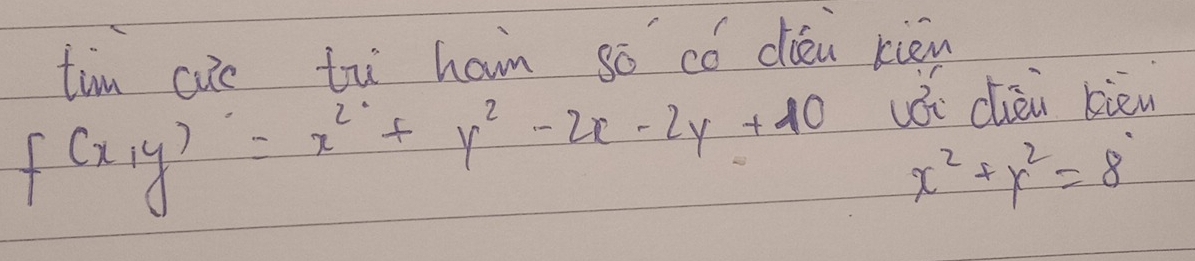 tìm cực trị hàm số có điều kiện
f(x,y) = x² + y² - 2x - 2y + 10 với điều kiện
x² + y² = 8